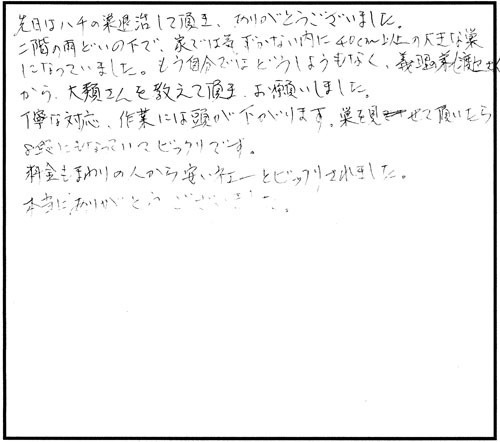 先日はハチの巣退治して頂き、ありがとうございました。
二階の雨どいの下で、家では気づかない内に40cm以上の大きな巣
になっていました。もう自分ではどうしようもなく、義理の弟
から、大類さんを教えて頂き、お願いしました。
丁寧な対応、作業には頭が下がります。巣を見せて頂いたら
8段にもなっていてビックリです。
料金もまわりの人から安いネェーとビックリされました。
本当にありがとうございました。